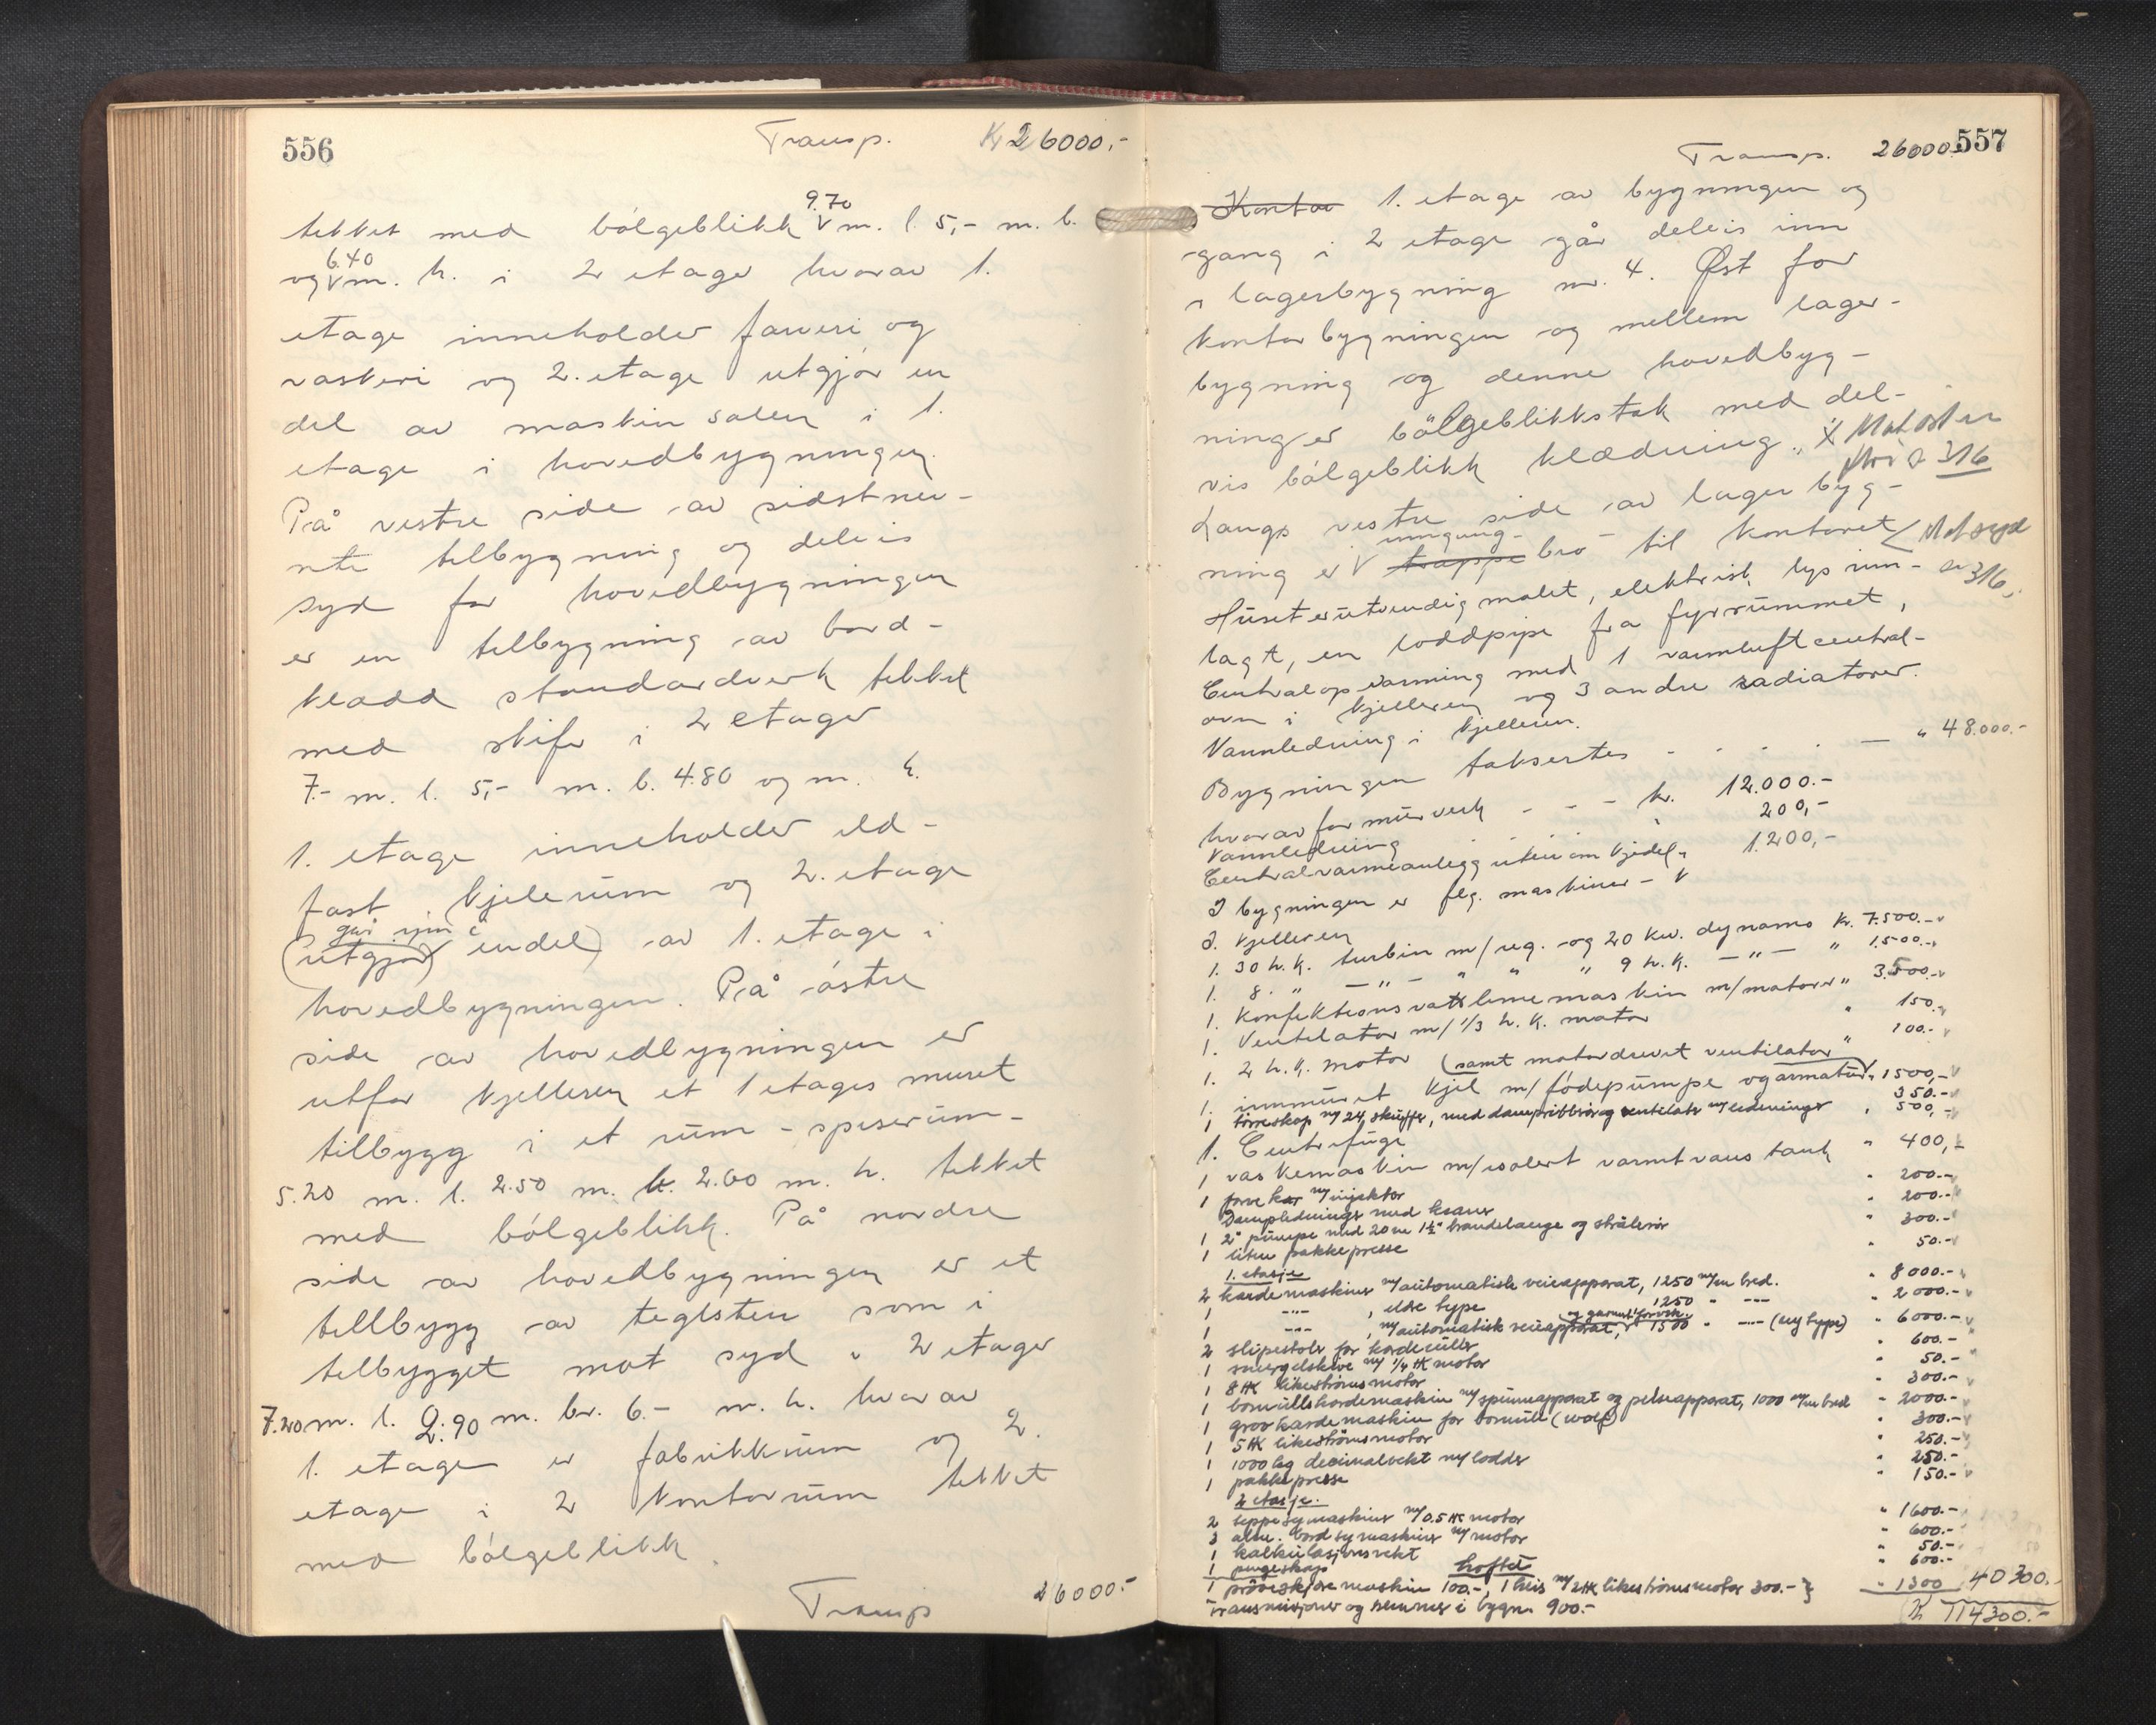 556
Transp. Kr 26000,-
9.70
tekket med bölgeblikk V m. l. 5,- m. b.
6.40
og V m. h. i 2 etager hvorav 1.
etage inneholder farveri og
vaskeri og 2. etage utgjör en
del av maskinsalen i 1.
etage i hovedbygningen.
På vestre side av sidstnev-
nte tilbygning og delvis
syd for hovedbygningen
er en tilbygning av bord-
kledd standardverk tekket
med skifer i 2 etager
7.- m. l. 5,- m. b. 4.80 og m. h.
1. etage inneholder ild-
fast kjelerüm og 2. etage
går inn i
(utgjör endel) av 1. etage i
hovedbygningen. På östre
side av hovedbygningen er
utfor kjelleren et 1 etages muret
tilbygg i et rüm - spiserüm -
5.20 m. l. 2.50 m. b. 2.60 m. h. tekket
med bölgeblikk. På nordre
side av hovedbygningen er et
tillbygg av teglsten som i
tilbygget mot syd i 2 etager
7.20 m. l. 2.90 m. br. 6.- m. h. hvorav
1. etage er fabrikkrüm og 2.
etage i 2 kontorrüm tekket
med bölgeblikk.
Transp 26000.-
557
Transp. 26000.-
Kontor 1. etage av bygningen og
gang i 2 etage går delvis inn
i lagerbygning nr. 4. Øst for
kontorbygningen og mellem lager-
bygning og denne hovedbyg-
ning er bölgeblikkstak med del-
vis bölgeblikk klædning. X Mot öst er
s 316
Langs vestre side av lagerbyg-
inngang-
ning er V trappe bro til kontoret Mot syd
se 316.
Hüset er ütvendig malet, elektrisk lys inn-
lagt, en loddpipe fra fyrrümmet,
Centralopvarming med 1 varmluftcentral-
ovn i kjelleren og 3 andre radiatorer.
Vannledning i kjelleren.
Bygningen takseres - - - - " 48.000.-
hvorav for mürverk - - - kr. 12.000.-
Vannledning " 200,-
Centralvarmeanlegg uten om kjedel " 1.200,-
I bygningen er flg. maskiner - V
I. kjelleren
1. 30 h.k. turbin m/ reg. og 20 kw. dynamo kr. 7.500.-
1. 8. " -"- " " " 9 h.k. -"- " 1.500.-
1. Konfektionsvattlimemaskin m/motorer " 3.500.-
1. Ventilator m/ 1/3 h.k. motor " 150.-
1. 2 h.k. motor (samt motordrevet ventilator " 100.-
1. innmüret kjel m/ födepümpe og armatür " 1500,-
1 törreskap m/ 24 sküffer, med dampribberör og ventilator m/ ledninger " 350.-
1. Centrifüge " 500,-
1 vaskemaskin m/isolert varmtvanstank " 400,-
1 farvekar m/injektor " 200.-
Dampledninger med kraner " 200.-
1 2" pümpe med 20 m 1½" brandslange og strålerör " 300.-
1 liten pakkepresse " 50.-
1. etasje
2 kardemaskiner m/automatisk veieapparat, 1250 m/m bred. " 8000.-
1 -"- , eldre type 1250 " -"- " 2000.-
og garnütforvek
1 -"- , m/automatisk veieapparat, V 1500 " -"- (ny type) " 6000.-
2 slipestoler for karderüller " 600.-
1 smergelskive m/ 1/4 HK motor " 50.-
1 8 HK likeströmsmotor " 300.-
1 bomüllskardemaskin m/spinneapparat og pelseapparat, 1000 m/m bred " 2000.-
1 grovkardemaskin for bomüll (wolf) " 300.-
1 5 HK likeströmsmotor " 250.-
1 1000 kg decimalvekt m/ lodder " 250.-
1 pakkepresse " 150.-
2 etasje.
2 teppesymaskiner m/0.5 HK motor " 1600.-
3 alm. bord symaskiner m/ motor " 600.-
1 kalkülasjonsvekt " 50.-
1 pengeskap " 600.-
Loftet
1 pröveskjæremaskin 100.-, 1 heis m/ 2 HK likeströmsmotor 300.- }
Transmisjoner og remmer i bygn. 900.- " 1300 40300.-
Kr 114300.-